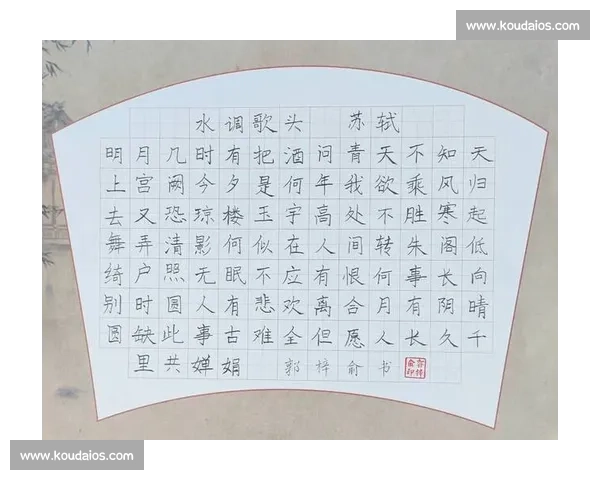 www.koudaios.com
水调歌头 苏轼
明月几时有把酒问青天不知天
上宫阙今夕是何年我欲乘风归
去又恐琼楼玉宇高处不胜寒起
舞弄清影何似在人间转朱阁低
绮户照无眠不应有恨何事长向
别时圆人有悲欢离合月有阴晴
圆缺此事古难全但愿人长久千
里共婵娟 郭梓俞书
www.koudaios.com